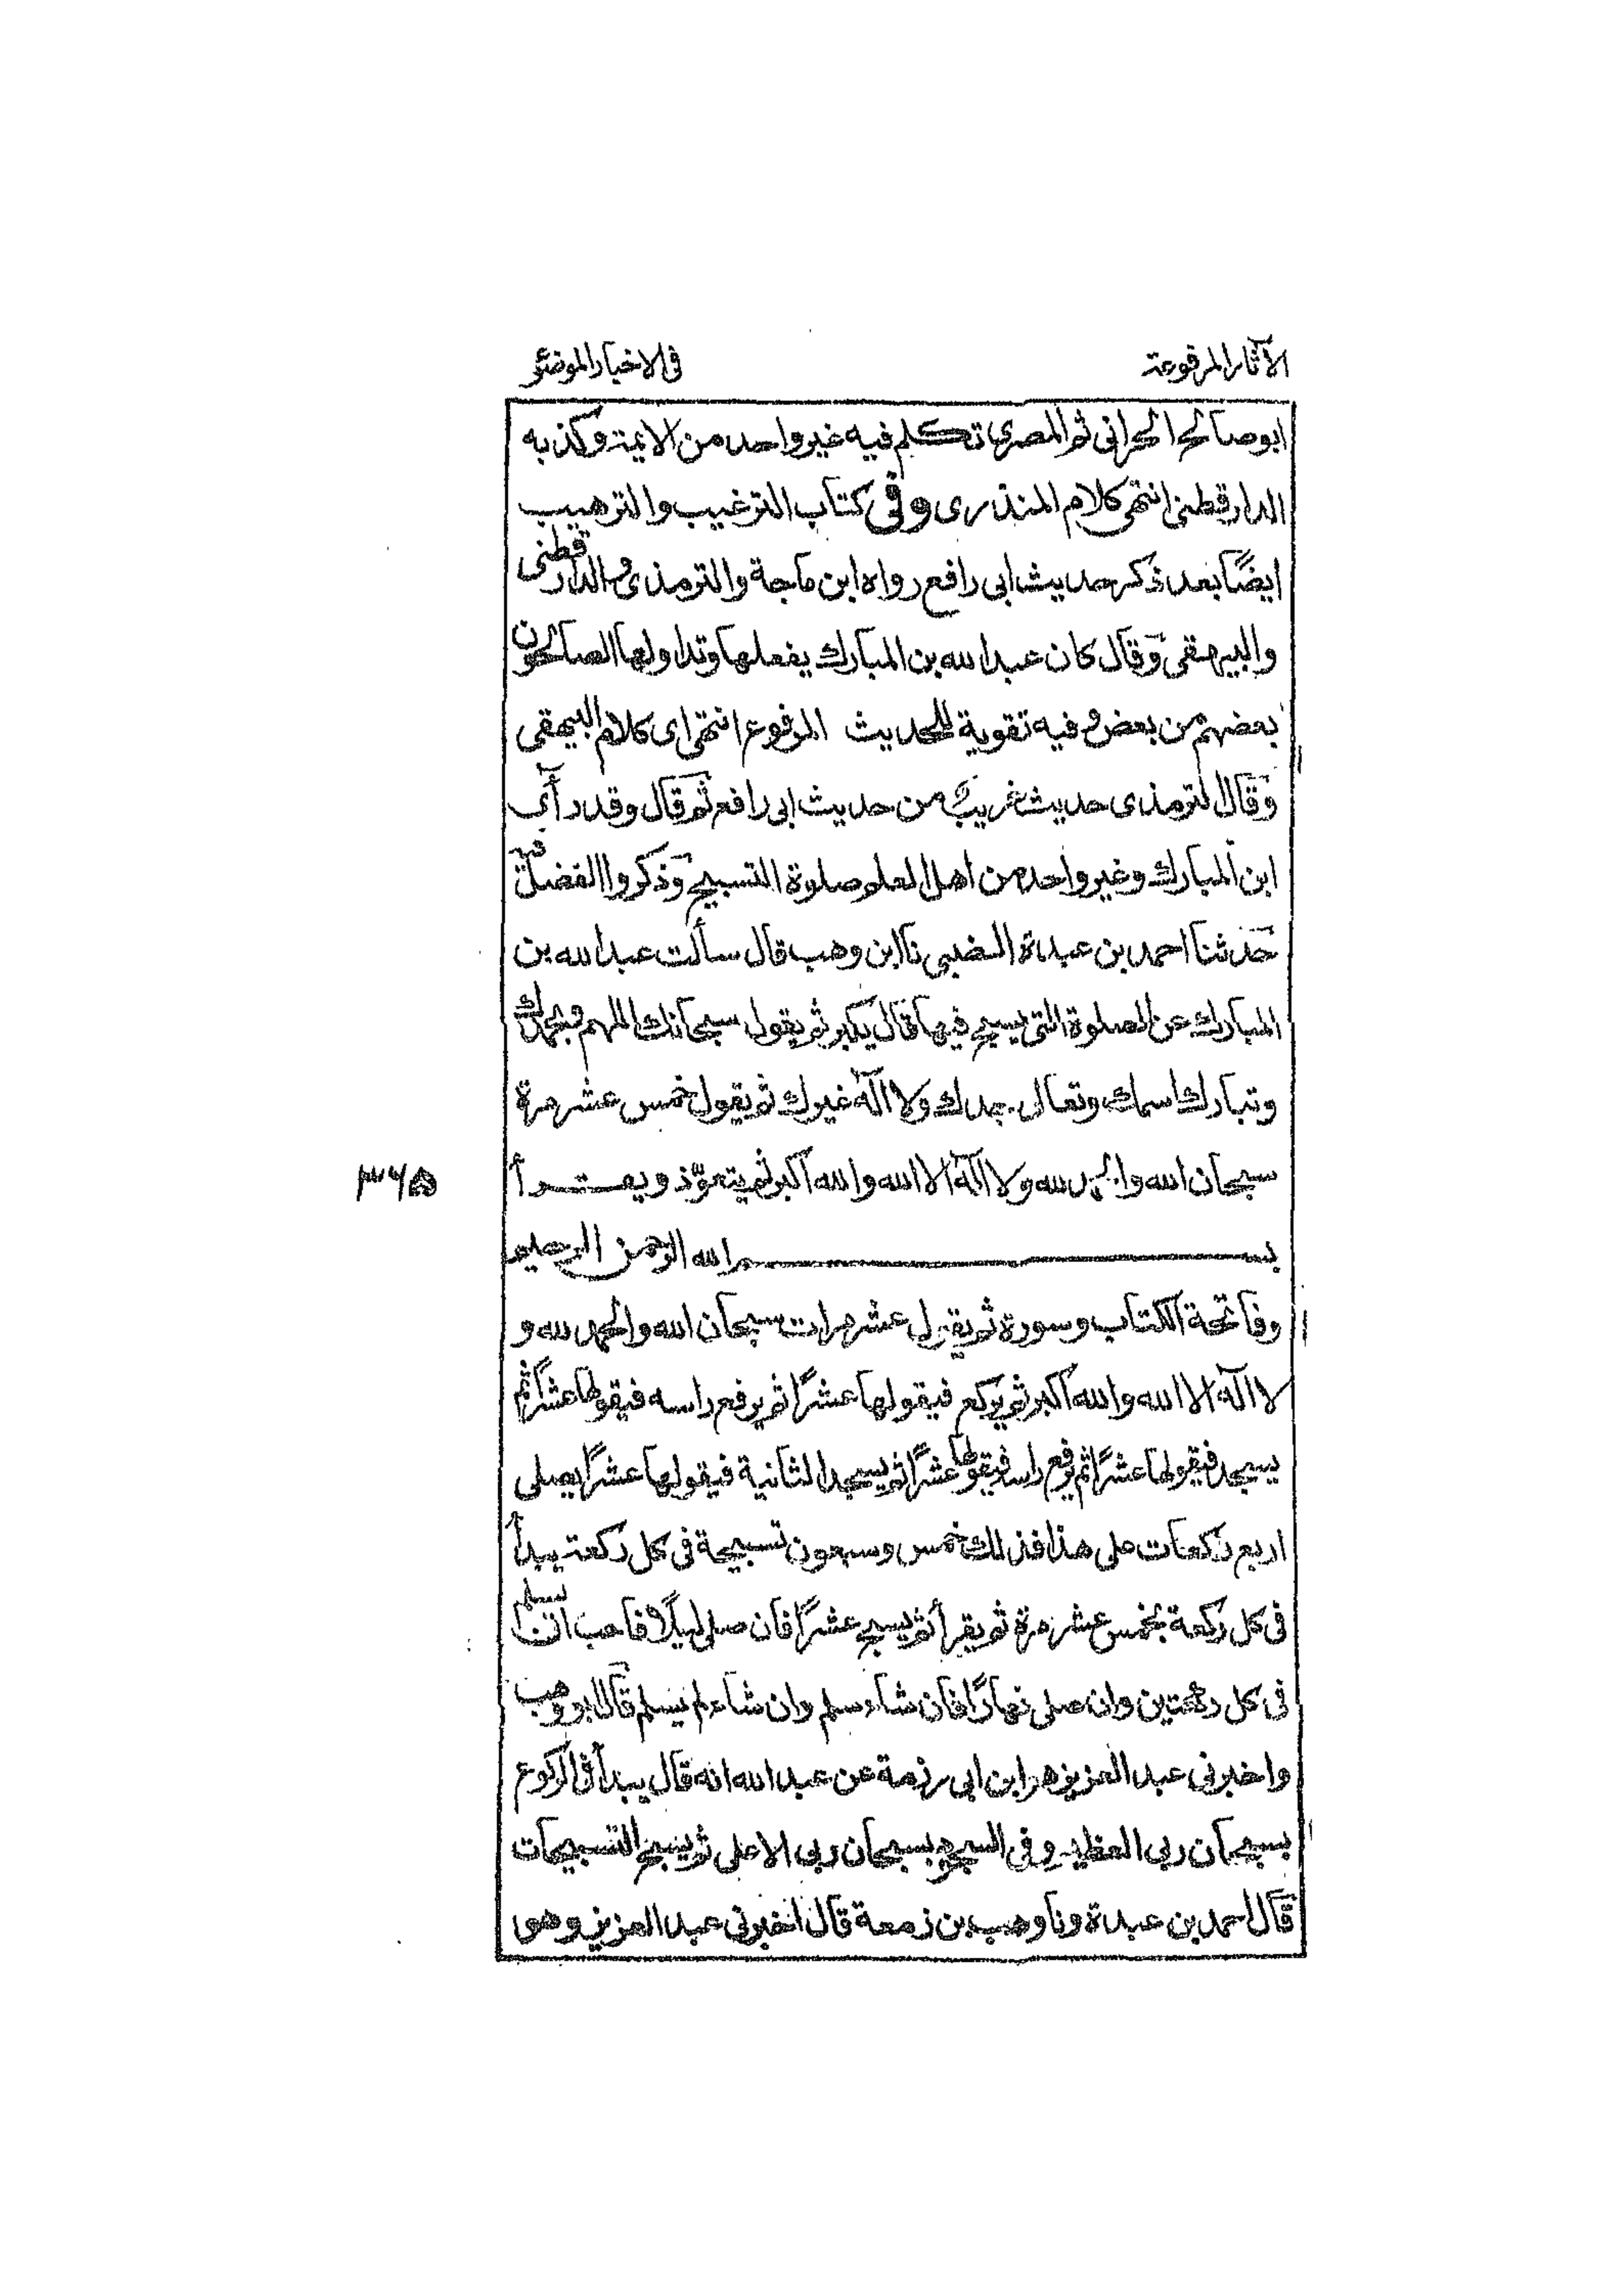 الآثار المرفوعة
فى الاخبار الموضوعة
ابو صالح الحرانى ثم المصرى تكلم فيه غير واحد من الائمة وكذبه
الدارقطنى انتهى كلام المنذرى وفى كتاب الترغيب والترهيب
ايضًا بعد ذكر حديث ابى رافع رواه ابن ماجة والترمذى والدارقطنى
والبيهقى وقال كان عبد الله بن المبارك يفعلها وتداولها الصالحون
بعضهم من بعض وفيه تقوية للحديث المرفوع انتهى اى كلام البيهقى
وقال لترمذى حديث غريب من حديث ابى رافع ثم قال وقد رأى
ابن المبارك وغير واحد من اهل العلم صلوة التسبيح وذكروا الفضل فيه
حدثنا احمد بن عبدة الضبى نا ابن وهب قال سألت عبد الله بن
المبارك عن الصلوة التى يسبح فيها قال يكبر ثم يقول سبحانك اللهم وبحمدك
وتبارك اسمك وتعالى جدك ولا اله غيرك ثم يقول خمس عشر مرة
سبحان الله والحمد لله ولا اله الا الله والله اكبر ثم يتعوّذ ويقرأ
بسم الله الرحمن الرحيم
وفاتحة الكتاب وسورة ثم يقول عشر مرات سبحان الله والحمد لله و
لا اله الا الله والله اكبر ثم يركع فيقولها عشرًا ثم يرفع راسه فيقولها عشرًا ثم
يسجد فيقولها عشرًا ثم يرفع راسه فيقولها عشرًا ثم يسجد الثانية فيقولها عشرًا يصلى
اربع ركعات على هذا فذلك خمس وسبعون تسبيحة فى كل ركعة يبدأ
فى كل ركعة بخمس عشر مرة ثم يقرأ ثم يسبح عشرًا فان صلى ليلًا فاحب ان يسلم
فى كل ركعتين وان صلى نهارًا فان شاء سلم وان شاء لم يسلم قال ابو وهب
واخبرنى عبد العزيز هو ابن ابى رزمة عن عبد الله انه قال يبدأ فى الركوع
بسبحان ربى العظيم وفى السجود بسبحان ربى الاعلى ثم يسبح التسبيحات
قال احمد بن عبدة ونا وهب بن زمعة قال اخبرنى عبد العزيز وهو
۳۶۵